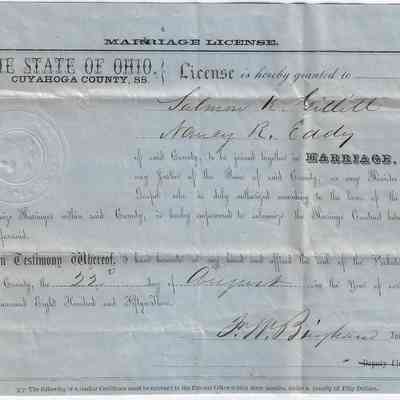 MARRIAGE LICENSE.
HE STATE OF OHIO,
CUYAHOGA COUNTY, SS.
License is hereby granted to
Salmon W. Gillett
Nancy R. Eddy
of said County, to be joined together in MARRIAGE,
any Justice of the Peace of said County, or any Minister
Gospel who is duly authorized according to the laws of the
Marriages within said County, is hereby empowered to solemnize the Marriage Contract
aforesaid.
In Testimony Whereof, I have hereunto set my hand and affixed the seal of the Probate
County, the 22d day of August in the Year of
Thousand Eight Hundred and Fifty
F. W. Bingham
Deputy
The following Certificate must be returned to the Probate Office within three months, under a penalty of Fifty Dollars.